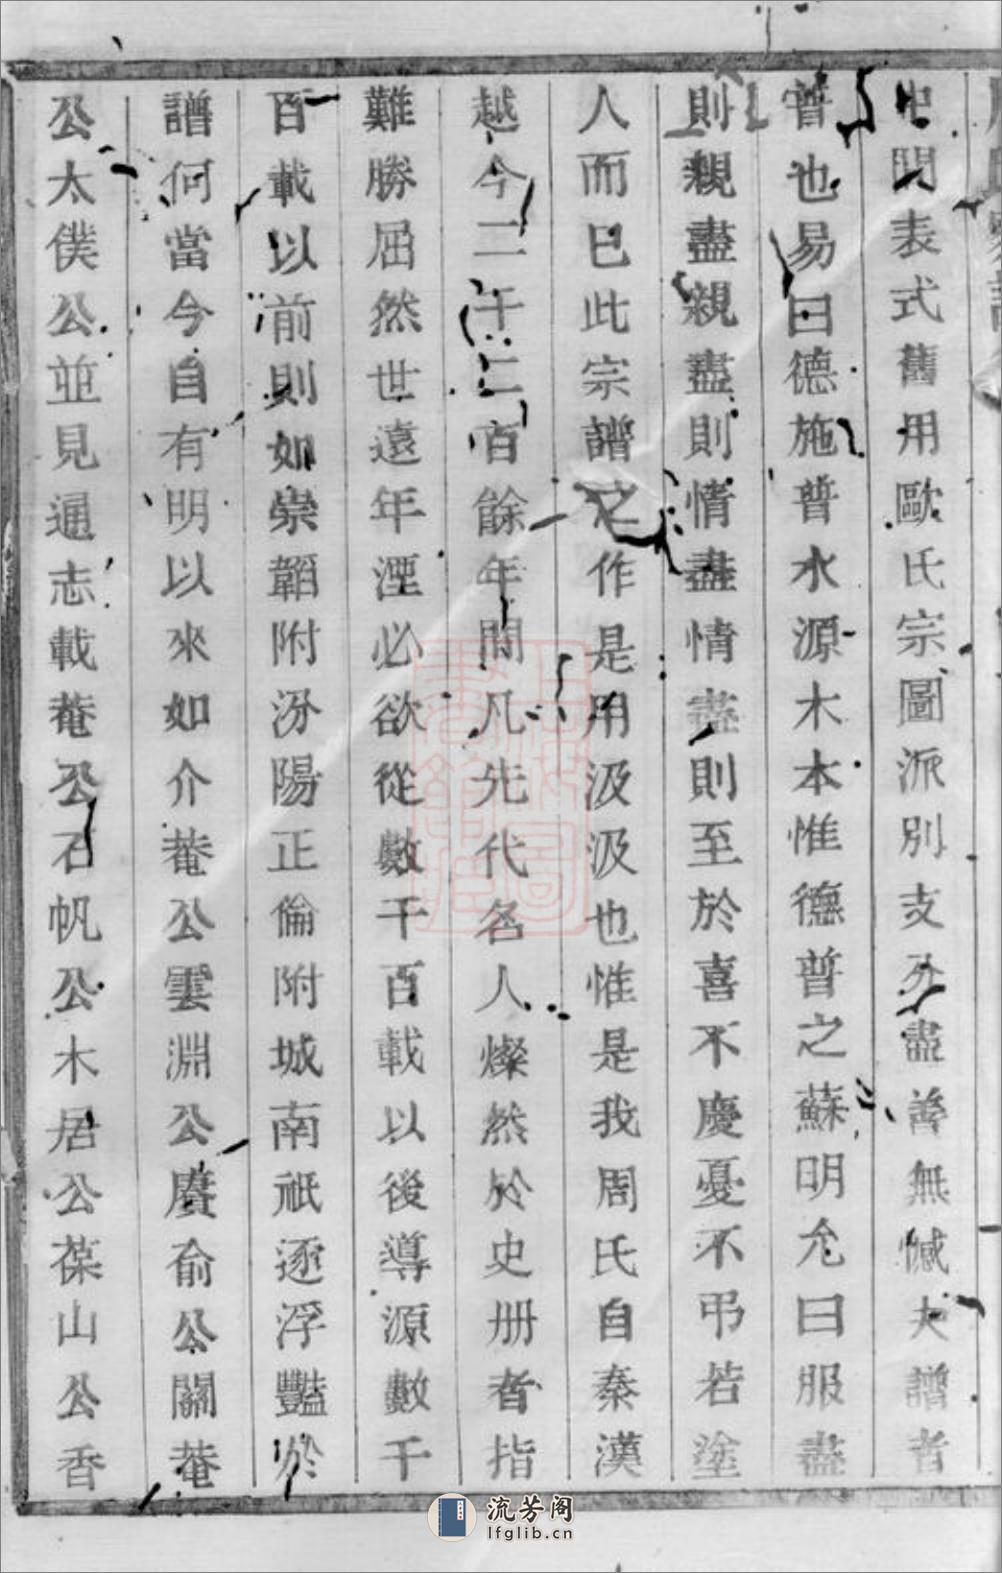 史閒表式舊用歐氏宗圖派別支分盡善無憾夫譜者
普也易曰德施普水源木本惟德普之蘇明允曰服盡
則親盡親盡則情盡情盡則至於喜不慶憂不弔若塗
人而已此宗譜之作是用汲汲也惟是我周氏自秦漢
越今二千二百餘年間凡先代名人燦然於史册者指
難勝屈然世遠年湮必欲從數千百載以後導源數千
百載以前則如崇韜附汾陽正倫附城南祇逐浮豔於
譜何當今自有明以來如介菴公雲淵公賡俞公關菴
公太僕公並見通志載菴公石帆公木居公葆山公香
流芳阁
lfglib.cn